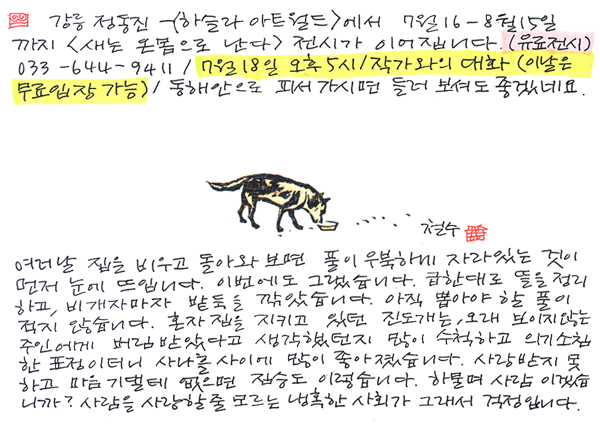 강릉 정동진 -<하슬라 아트월드>에서 7월 16 - 8월 15일
까지 <새는 온몸으로 난다> 전시가 이어집니다. (유료전시)
033 -644-9411 / 7월 18일 오후 5시 / 작가와의 대화 (이날은
무료입장 가능) / 동해안으로 피서 가시면 들러 보셔도 좋겠네요.
철수
여러날 집을 비우고 돌아와 보면 풀이 우북하게 자라있는 것이
먼저 눈에 뜨입니다. 이번에도 그랬습니다. 급한대로 뜰을 정리
하고, 비개자마자 밭둑을 깎았습니다. 아직 뽑아야 할 풀이
적지 않습니다. 혼자 집을 지키고 있던 진도개는, 오래 보이지않는
주인에게 버림받았다고 생각했던지 많이 수척하고 의기소침
한 표정이더니 사나흘 사이에 많이 좋아졌습니다. 사랑받지 못
하고 마음 기댈데 없으면 짐승도 이렇습니다. 하물며 사람이겠습
니까? 사람을 사랑할 줄 모르는 냉혹한 사회가 그래서 걱정입니다.